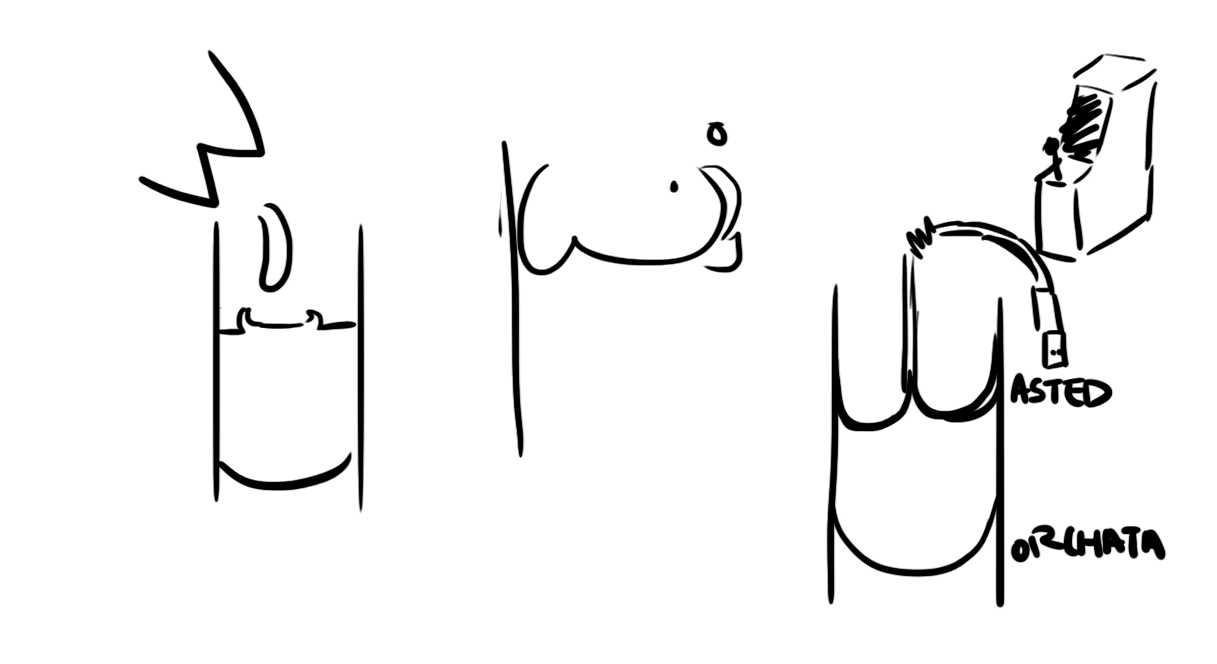 ASTED
ORCHATA